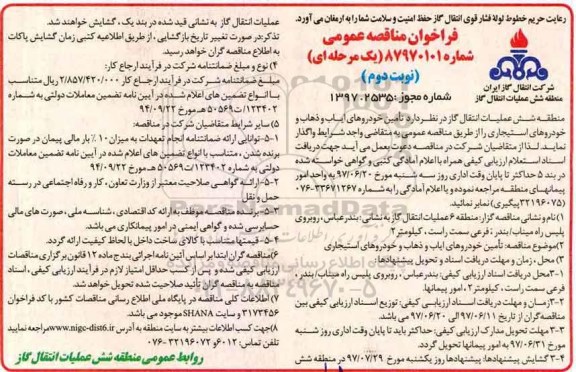 رعایت حریم خطوط لوله فشار قوی انتقال گاز حفظ امنیت و سلامت شما را به ارمغان می آورد.
فراخوان مناقصه عمومی
شماره ۸۷۹۷۰۱۰۱ (یک مرحله ای)
(نوبت دوم)
شماره مجوز: ۱۳۹۷-۲۵۳۵
شرکت انتقال گاز ایران
منطقه شش عملیات انتقال گاز
منطقه شش عملیات انتقال گاز در نظر دارد تامین خودروهای ایاب و ذهاب و
خودروهای استیجاری را از طریق مناقصه عمومی به متقاضی واجد شرایط واگذار
نماید. لذا از متقاضیان شرکت در مناقصه دعوت بعمل می آید جهت دریافت
اسناد استعلام ارزیابی کیفی همراه با اعلام آمادگی کتبی و گواهی خواسته شده
در بند ۵ حداکثر تا پایان وقت اداری روز سه شنبه مورخ ۹۷/۰۶/۲۰ به واحد امور
پیمانهای منطقه مراجعه نموده و یا اعلام آمادگی را به شماره ۳۳۶۷۱۲۶۷-۰۷۶
(۳۲۱۹۶۰۷۵ پیگیری) نمابر نمائید.
۱) نام و نشانی مناقصه گزار: منطقه ۶ عملیات انتقال گاز به نشانی: بندرعباس، روبروی
پلیس راه میناب/بندر، فرعی سمت راست، کیلومتر ۲
۲) موضوع مناقصه: تأمین خودروهای ایاب و ذهاب و خودروهای استیجاری
۳) محل، زمان و مهلت دریافت اسناد و تحویل پیشنهادها:
۳-۱ محل دریافت اسناد ارزیابی کیفی: بندرعباس، روبروی پلیس راه میناب/بندر،
فرعی سمت راست، کیلومتر ۲، امور پیمانها.
۳-۲ زمان و مهلت دریافت اسناد ارزیابی کیفی: توزیع اسناد ارزیابی کیفی بین
مناقصه گران از تاریخ ۹۷/۰۶/۱۱ الی ۹۷/۰۶/۲۰ می باشد.
۳-۳ مهلت تحویل مدارک ارزیابی کیفی: حداکثر باید تا پایان وقت اداری روز شنبه
مورخ ۹۷/۰۶/۳۱ به امور پیمانها تحویل گردد.
۳-۴ گشایش پیشنهادها: پیشنهادها روز یکشنبه مورخ ۹۷/۰۷/۲۹ در منطقه شش
عملیات انتقال گاز به نشانی قید شده در بند یک، گشایش خواهند شد.
تذکر: در صورت تغییر تاریخ بازگشایی، از طریق اطلاعیه کتبی زمان گشایش پاکات
به اطلاع مناقصه گران خواهد رسید.
۴) نوع و مبلغ ضمانتنامه شرکت در فرآیند ارجاع کار:
مبلغ ضمانتنامه شرکت در فرآیند ارجاع کار ۲/۸۵۷/۴۲۰/۰۰۰ ریال متناسب
با انواع تضمین های اعلام شده در آیین نامه تضمین معاملات دولتی به شماره
۱۲۳۴۰۲/ت۵۰۶۵۹هـ مورخ ۹۴/۰۹/۲۲
۵) سایر شرایط متقاضیان شرکت در مناقصه:
۵-۱- توانایی ارائه ضمانتنامه انجام تعهدات به میزان ۱۰٪ بار مالی پیمان در صورت
برنده شدن، متناسب با انواع تضمین های اعلام شده در آیین نامه تضمین معاملات
دولتی به شماره ۱۲۳۴۰۲/ت۵۰۶۵۹هـ مورخ ۹۴/۰۹/۲۲
۵-۲- ارائه گواهی صلاحیت معتبر از وزارت تعاون، کار و رفاه اجتماعی در رسته
حمل و نقل
۵-۳- برنده مناقصه موظف به ارائه کد اقتصادی، شناسه ملی، صورت های مالی
حسابرسی شده و گواهی ایمنی در امور پیمانکاری می باشد.
۵-۴- قیمتها متناسب با کالای ساخت داخل با لحاظ کیفیت ارائه گردد.
۶) مناقصه گران ابتدا بر اساس آئین نامه اجرائی بند ج ماده ۱۲ قانون برگزاری مناقصات
ارزیابی کیفی شده و پس از کسب حداقل امتیاز لازم در فرآیند ارزیابی کیفی، اسناد
مناقصه به مناقصه گران تأئید صلاحیت شده تحویل خواهد شد.
۷) اطلاعات کلی مناقصه در پایگاه ملی اطلاع رسانی مناقصات کشور با کد فراخوان
۳۱۷۳۴۵۶ و سایت SHANA موجود می باشد.
۸) جهت کسب اطلاعات بیشتر به سایت منطقه به آدرس www.nigc-dist6.ir مراجعه نمایید
تلفن تماس: ۶۰۱۲ و ۳۲۱۹۶۰۷۲-۰۷۶
روابط عمومی منطقه شش عملیات انتقال گاز